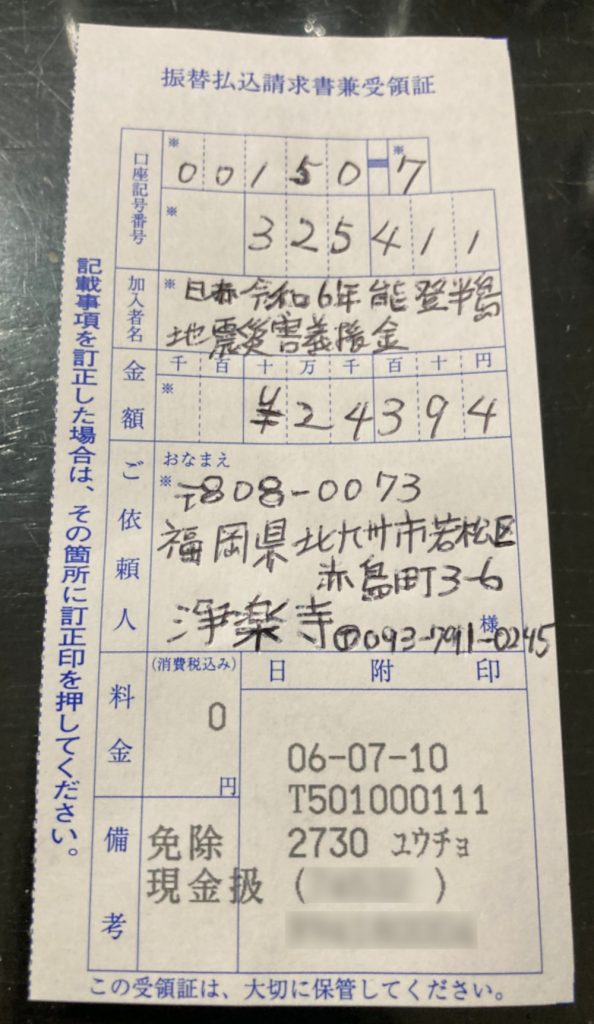 振替払込請求書兼受領証
口座記号番号
※ 00150-※7
※ 325411
加入者名
※ 日赤令和6年能登半島
地震災害義援金
金額
千 百 十 万 千 百 十 円
※ ¥24394
ご依頼人
おなまえ
※ 〒808-0073
福岡県北九州市若松区
赤島町3-6
浄楽寺 様
☎093-791-0245
料金
(消費税込み)
0
円
日附印
06-07-10
T501000111
2730 ユウチョ
備考
免除
現金扱 ( )
この受領証は、大切に保管してください。
記載事項を訂正した場合は、その箇所に訂正印を押してください。